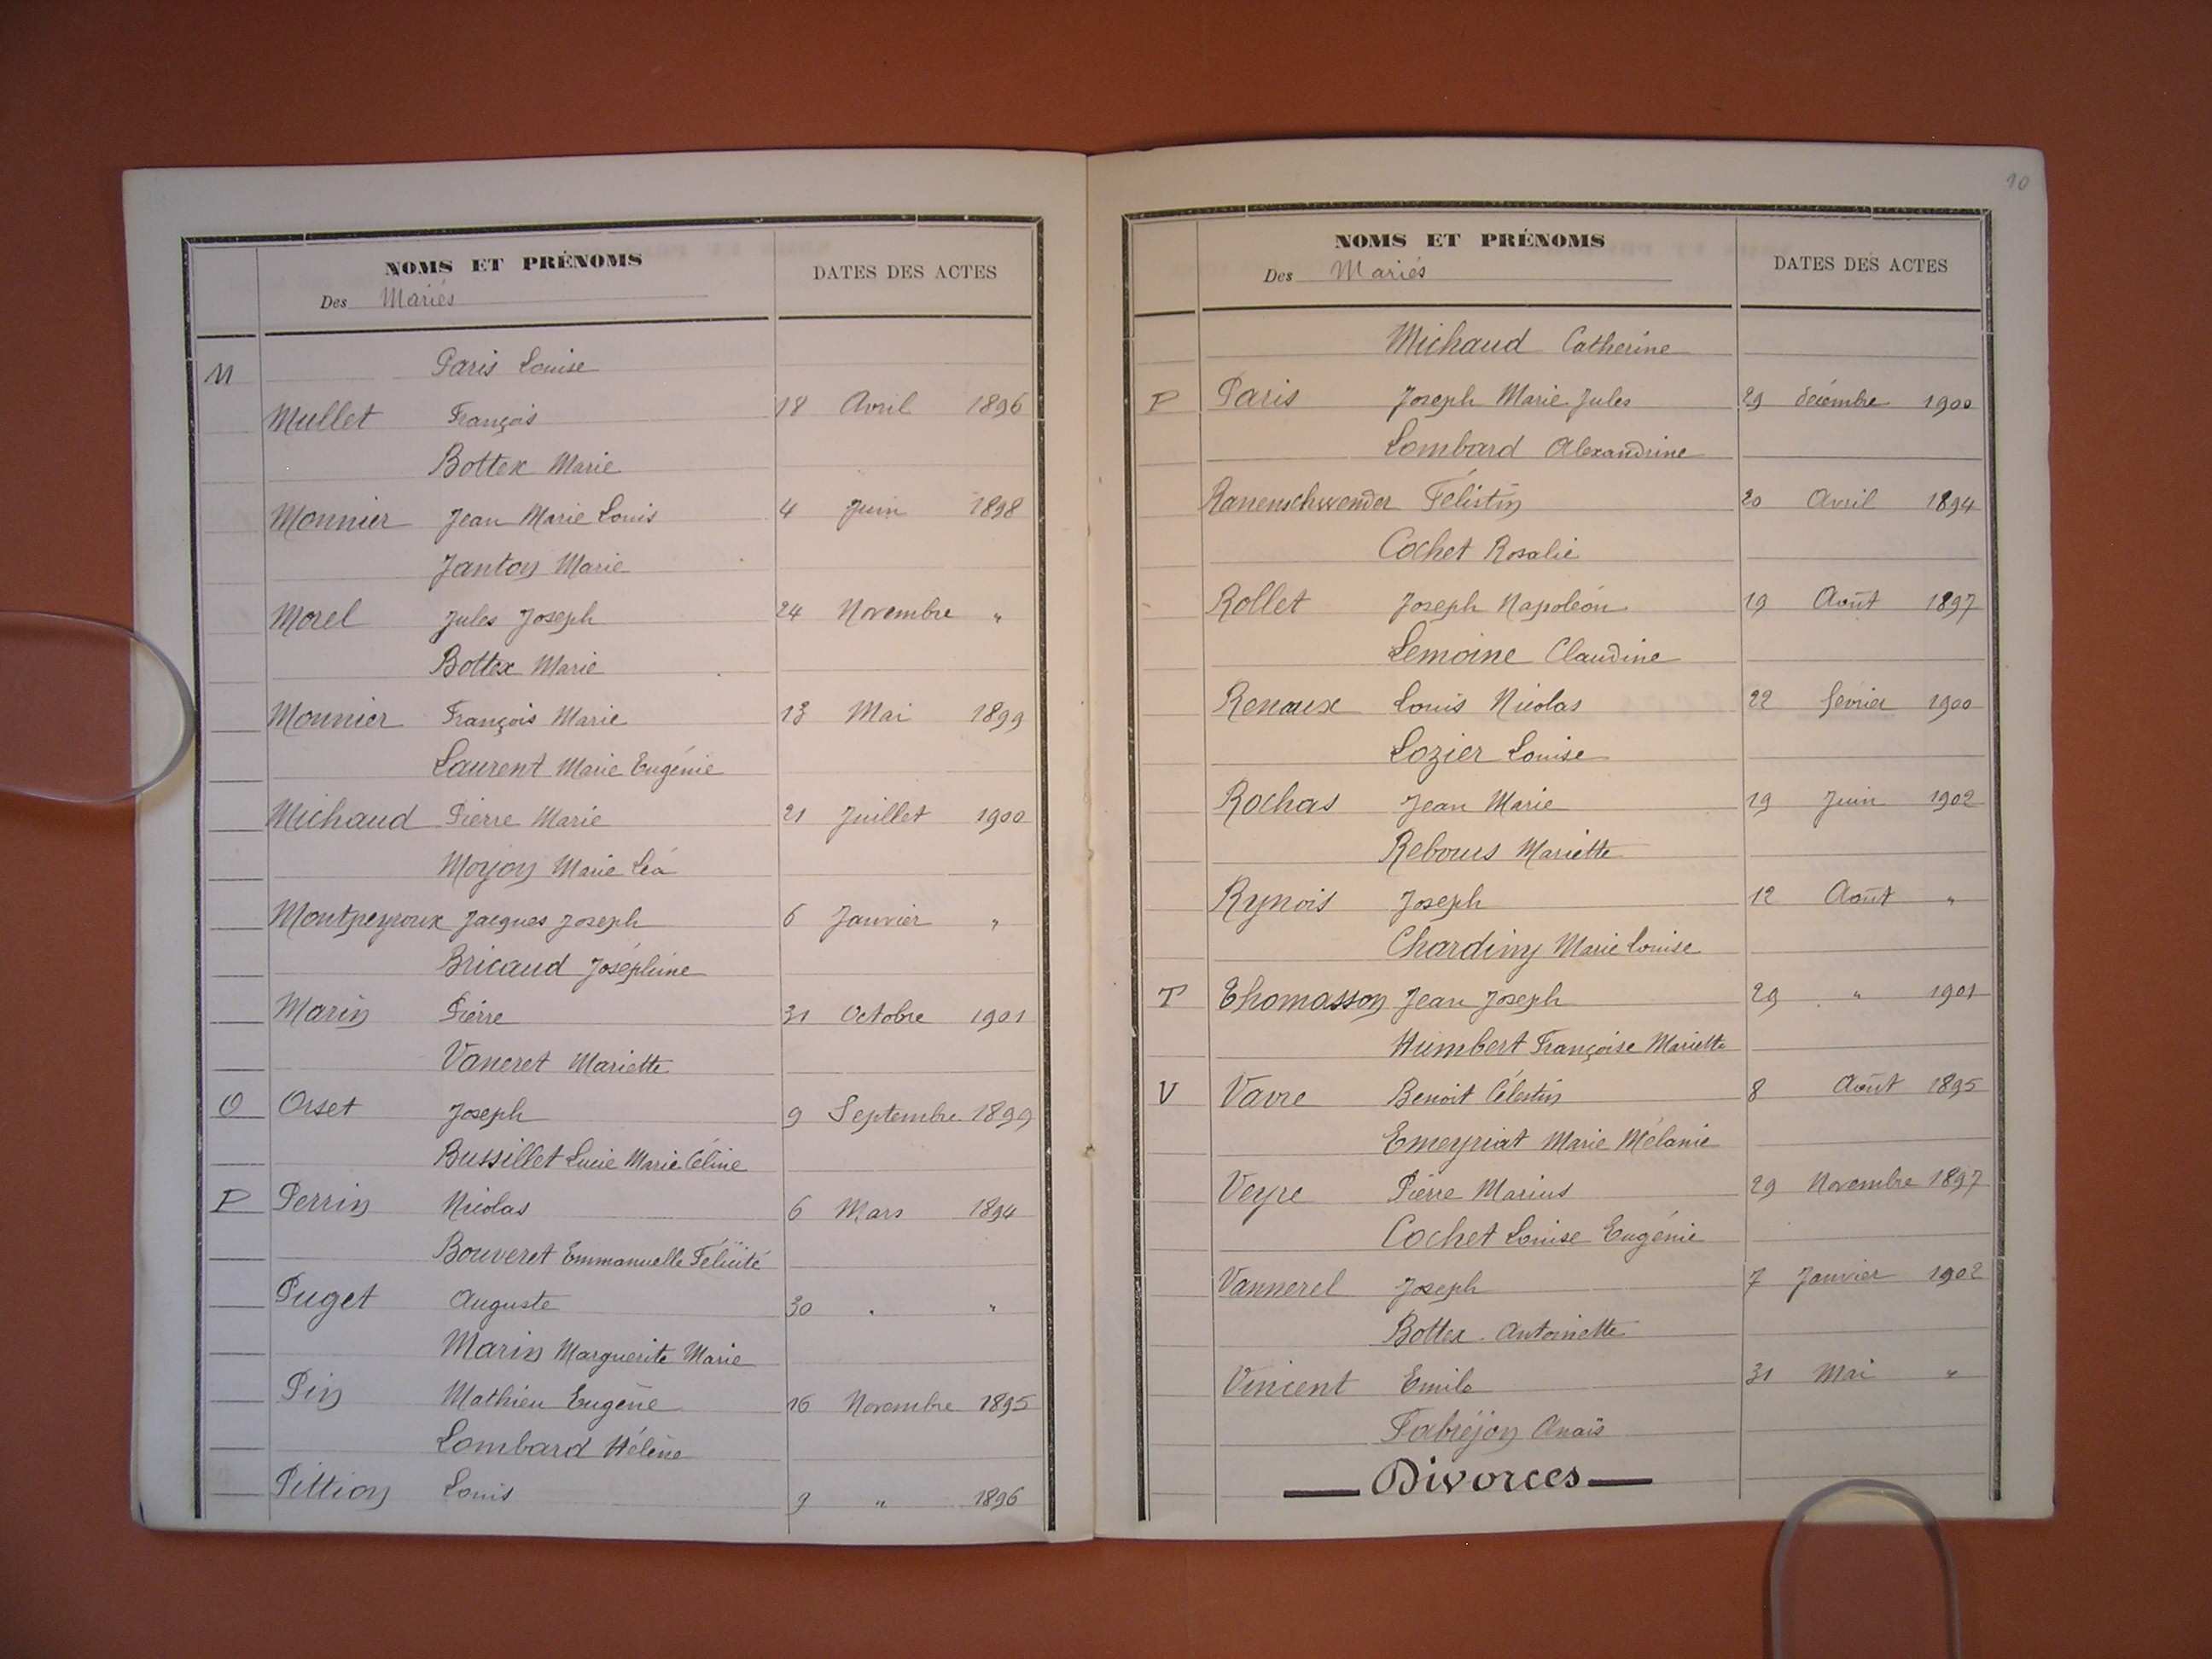 NOMS ET PRÉNOMS
DATES DES ACTES
Des Mariés
M Paris Louise
Mullet François 18 Avril 1896
Bottex Marie
Monnier Jean Marie Louis 4 Juin 1898
Janton Marie
Morel Jules Joseph 24 Novembre "
Bottex Marie
Monnier François Marie 13 Mai 1899
Laurent Marie Eugénie
Michaud Pierre Marie 21 Juillet 1900
Moyon Marie Léa
Montpeyroux Jacques Joseph 6 Janvier "
Bricaud Joséphine
Marin Pierre 31 Octobre 1901
Vaneret Mariette
O Orset Joseph 9 Septembre 1899
Bussillet Lucie Marie Céline
P Perrin Nicolas 6 Mars 1894
Bouveret Emmanuelle Félicité
Puget Auguste 30 " "
Marin Marguerite Marie
Pin Mathieu Eugène 16 Novembre 1895
Lombard Hélène
Pittion Louis 9 " 1896
10
NOMS ET PRÉNOMS
DATES DES ACTES
Des Mariés
Michaud Catherine
P Paris Joseph Marie Jules 29 décembre 1900
Lombard Alexandrine
Ranenschwender Félistin 20 Avril 1894
Cochet Rosalie
Rollet Joseph Napoléon 19 Août 1897
Lemoine Claudine
Renaux Louis Nicolas 22 février 1900
Lozier Louise
Rochas Jean Marie 19 Juin 1902
Rebours Mariette
Rynois Joseph 12 Août "
Chardiny Marie Louise
T Thomasson Jean Joseph 29 " 1901
Humbert Françoise Mariette
V Vavre Benoit Célestin 8 Août 1895
Emeyriat Marie Mélanie
Veyre Pierre Marius 29 Novembre 1897
Cochet Louise Eugénie
Vannerel Joseph 7 Janvier 1902
Bottex Antoinette
Vincent Emile 31 Mai "
Fabréjon Anaïs
Divorces